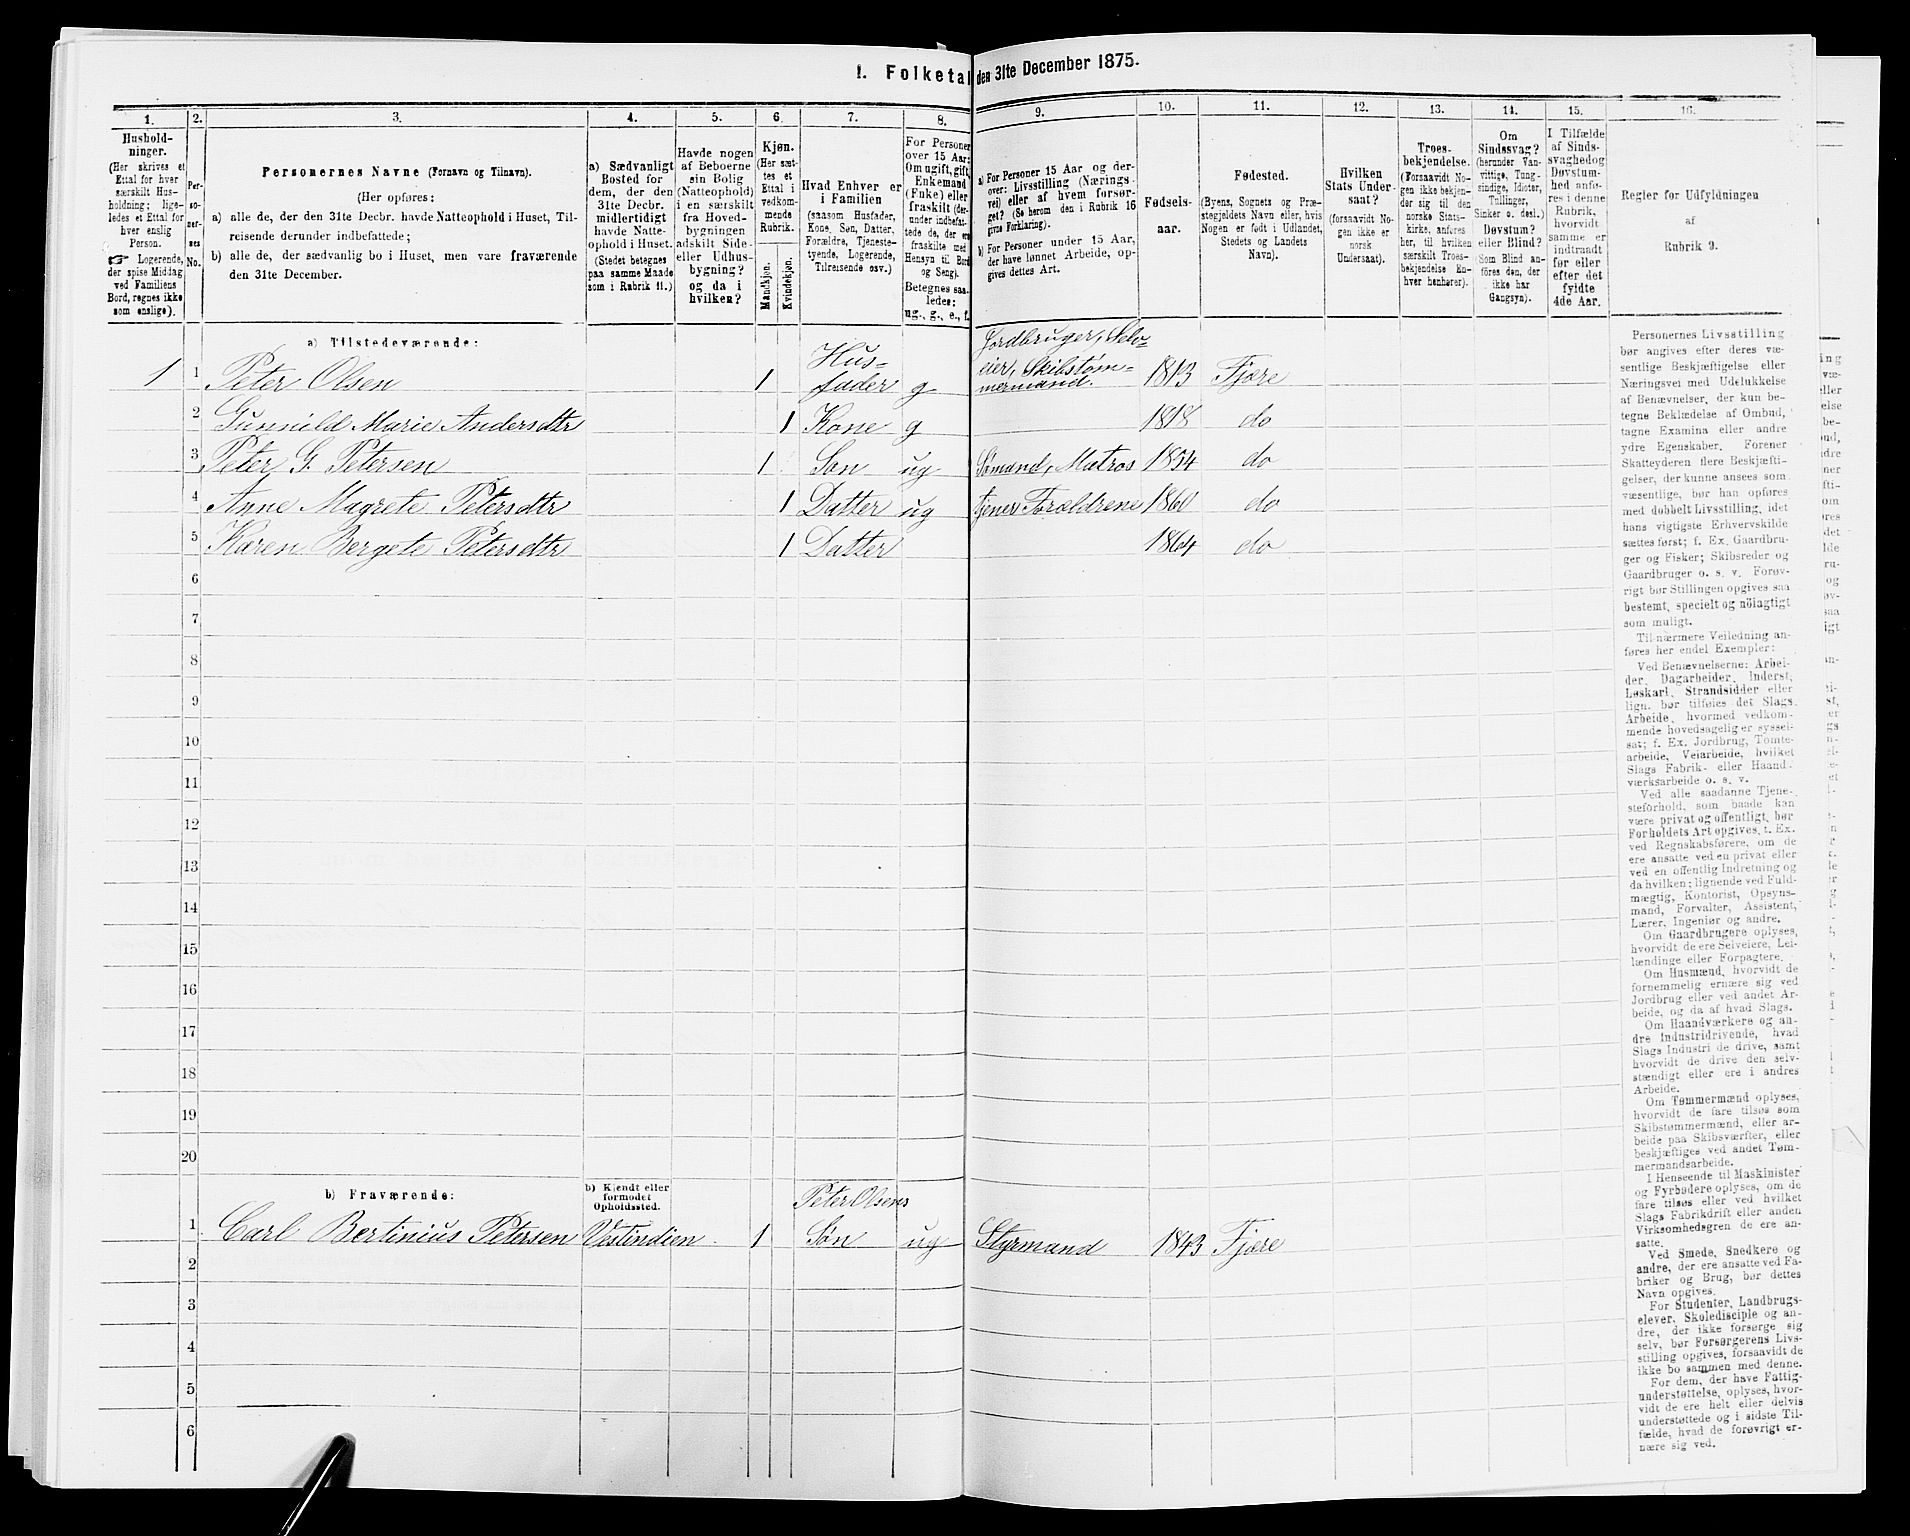 I. Folketal den 31te December 1875.
1. 2. 3. 4. 5. 6. 7. 8. 9. 10. 11. 12. 13. 14. 15. 16.
Hushold-
ninger.
(Her skrives et
Ettal for hver
særskilt Hus-
holdning; lige-
ledes et Ettal for
hver enslig
Person.
☞ Logerende,
der spise Middag
ved Familiens
Bord, regnes ikke
som enslige).
Per-
so-
ner-
nes
No.
Personernes Navne (Fornavn og Tilnavn).
(Her opføres:
a) alle de, der den 31te Decbr. havde Natteophold i Huset, Til-
reisende derunder indbefattede;
b) alle de, der sædvanlig bo i Huset, men vare fraværende
den 31te December.
a) Sædvanligt
Bosted for
dem, der den
31te Decbr.
midlertidigt
havde Natte-
ophold i Huset.
(Stedet betegnes
paa samme Maade
som i Rubrik 11.)
Havde nogen
af Beboerne
sin Bolig
(Natteophold)
i en særskilt
fra Hoved-
bygningen
adskilt Side-
eller Udhus-
bygning?
og da i
hvilken?
Kjøn.
(Her sæt-
tes et
Ettal i
vedkom-
mende
Rubrik.
Mandkjøn.
Kvindekjøn.
Hvad Enhver er
i Familien
(saasom Husfader,
Kone, Søn, Datter,
Forældre, Tjeneste-
tyende, Logerende,
Tilreisende osv.)
For Personer
over 15 Aar:
Om ugift, gift,
Enkemand
(Enke) eller
fraskilt (der-
under indbefat-
tede de, der ere
fraskilte med
Hensyn til Bord
og Seng).
Betegnes saa-
ledes:
ug., g., e., f.
a) For Personer 15 Aar og der-
over: Livsstilling (Nærings-
vei) eller af hvem forsør-
get? (Se herom den i Rubrik 16
givne Forklaring).
b) For Personer under 15 Aar,
der have lønnet Arbeide, op-
gives dettes Art.
Fødsels-
aar.
Fødested.
(Byens, Sognets og Præ-
stegjeldets Navn eller, hvis
Nogen er født i Udlandet,
Stedets og Landets
Navn).
Hvilken
Stats Under-
saat?
(forsaavidt No-
gen ikke er
norsk
Undersaat).
Troes-
bekjendelse.
(Forsaavidt No-
gen ikke bekjen-
der sig til den
norske Stats-
kirke, anføres
her, til hvilken
særskilt Troes-
bekjendelse En-
hver henhører).
Om
Sindssvag?
(herunder Van-
vittige, Tung-
sindige, Idioter,
Tullinger,
Sinker o. desl.)
Døvstum?
eller Blind?
(Som Blind an-
føres den, der
ikke har
Gangsyn).
I Tilfælde
af Sinds-
svaghed og
Døvstum-
hed anfø-
res i denne
Rubrik,
hvorvidt
samme er
indtraadt
før eller
efter det
fyldte
4de Aar.
Regler for Udfyldningen
af
Rubrik 9.
a) Tilstedeværende:
1 1 Peter Olsen 1 Hus-
fader g Jordbruger, Selv-
eier, Skibstøm-
mermand. 1813 Fjære
2 Gunnild Marie Andersdtr 1 Kone g 1818 do
3 Peter G. Petersen 1 Søn ug Sømand, Matros 1854 do
4 Anne Magrete Petersdtr 1 Datter ug tjener Forældrene 1860 do
5 Karen Bergete Petersdtr 1 Datter 1864 do
6
7
8
9
10
11
12
13
14
15
16
17
18
19
20
b) Fraværende:
b) Kjendt eller
formodet
Opholdssted.
1 Carl Bertinius Petersen Vestindien 1 Peter Olsens
Søn ug Styrmand 1843 Fjære
2
3
4
5
6
Personernes Livsstilling
bør angives efter deres væ-
sentlige Beskjæftigelse eller
Næringsvei med Udelukkelse
af Benævnelser, der kun be-
tegne Beklædelse af Ombud,
tagne Examina eller andre
ydre Egenskaber. Forener
Skatteyderen flere Beskjæfti-
gelser, der kunne ansees som
væsentlige, bør han opføres
med dobbelt Livsstilling, idet
hans vigtigste Erhvervskilde
sættes først; f. Ex. Gaardbru-
ger og Fisker; Skibsreder og
Gaardbruger o. s. v. Forøv-
rigt bør Stillingen opgives saa
bestemt, specielt og nöiagtigt
som muligt.
Til nærmere Veiledning an-
føres her endel Exempler:
Ved Benævnelserne: Arbei-
der, Dagarbeider, Inderst,
Løskarl, Strandsidder eller
lign. bør tilføies det Slags
Arbeide, hvormed vedkom-
mende hovedsagelig er syssel-
sat; f. Ex. Jordbrug, Tomte-
arbeide, Veiarbeide, hvilket
Slags Fabrik- eller Haand-
værksarbeide o. s. v.
Ved alle saadanne Tjene-
steforhold, som baade kan
være privat og offentligt, bør
Forholdets Art opgives, t. Ex.
ved Regnskabsførere, om de
ere ansatte ved en privat eller
ved en offentlig Indretning og
da hvilken; lignende ved Fuld-
mægtig, Kontorist, Opsyns-
mand, Forvalter, Assistent,
Lærer, Ingeniør og andre.
Om Gaardbrugere oplyses,
hvorvidt de ere Selveiere, Lei-
lændinge eller Forpagtere.
Om Husmænd, hvorvidt de
fornemmelig ernære sig ved
Jordbrug eller ved andet Ar-
beide, og da af hvad Slags.
Om Haandværkere og an-
dre Industridrivende, hvad
Slags Industri de drive, samt
hvorvidt de drive den selv-
stændigt eller ere i andres
Arbeide.
Om Tømmermænd oplyses,
hvorvidt de fare tilsøs som
Skibstømmermænd, eller ar-
beide paa Skibsværfter, eller
beskjæftiges ved andet Tøm-
mermandsarbeide.
I Henseende til Maskinister
og Fyrbødere oplyses, om de
fare tilsøs eller ved hvilket
Slags Fabrikdrift eller anden
Virksomhedsgren de ere an-
satte.
Ved Smede, Snedkere og
andre, der ere ansatte ved Fa-
briker og Brug, bør dettes
Navn opgives.
For Studenter, Landbrugs-
elever, Skoledisciple og an-
dre, der ikke forsørge sig
selv, bør Forsørgerens Livs-
stilling opgives, forsaavidt de
ikke bo sammen med denne.
For dem, der have Fattig-
understøttelse, oplyses, hvor-
vidt de ere helt eller delvis
understøttede og i sidste Til-
fælde, hvad de forøvrigt er-
nære sig ved.